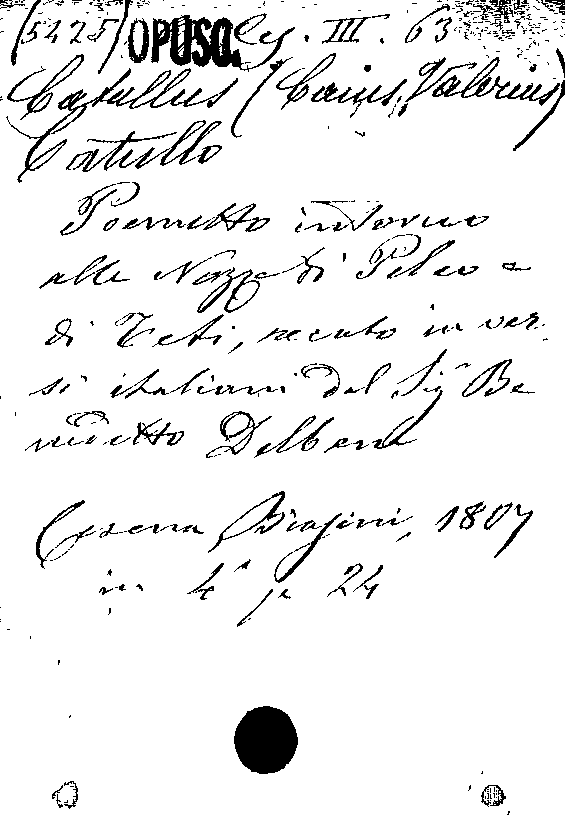 (5425) OPUSC. Leg. III. 63
Catullus (Caius, Valerius)
Catullo
Poemetto intorno
alle Nozze di Peleo e
di Teti, recato in ver-
si italiani dal Sigr Be
nedetto Delbene
Cesena, Biasini, 1807
in 4° p 24